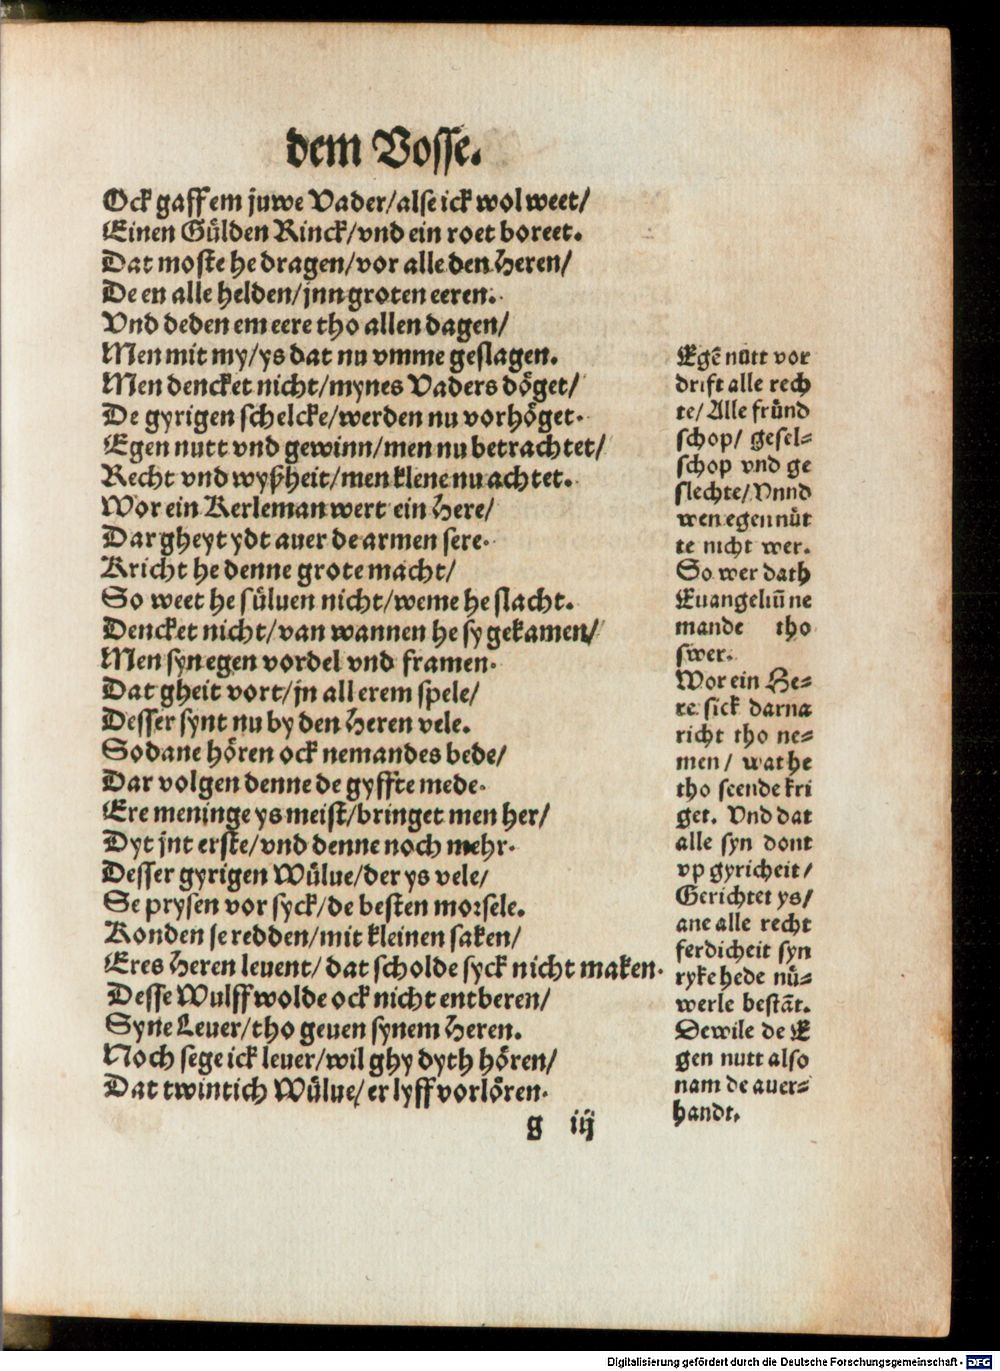 dem Vosse.
Ock gaff em juwe Vader/alse ick wol weet/
Einen Gülden Rinck/vnd ein roet boreet.
Dat moste he dragen/vor alle den Heren/
De en alle helden/jnn groten eeren.
Vnd deden em eere tho allen dagen/
Men mit my/ys dat nu vmme geslagen.
Men dencket nicht/mynes Vaders döget/
De gyrigen schelcke/werden nu vorhöget.
Egen nutt vnd gewinn/men nu betrachtet/
Recht vnd wyßheit/men klene nu achtet.
Wor ein Kerleman wert ein Here/
Dar gheyt ydt auer de armen sere.
Kricht he denne grote macht/
So weet he süluen nicht/weme he slacht.
Dencket nicht/van wannen he sy gekamen/
Men syn egen vordel vnd framen.
Dat gheit vort/jn all erem spele/
Desser synt nu by den Heren vele.
Sodane hören ock nemandes bede/
Dar volgen denne de gyffte mede.
Ere meninge ys meist/bringet men her/
Dyt jnt erste/vnd denne noch mehr.
Desser gyrigen Wülue/der ys vele/
Se prysen vor syck/de besten morsele.
Konden se redden/mit kleinen saken/
Eres Heren leuent/dat scholde syck nicht maken.
Desse Wulff wolde ock nicht entberen/
Syne Leuer/tho geuen synem Heren.
Noch sege ick leuer/wil ghy dyth hören/
Dat twintich Wülue/er lyff vorlören.
g iij
Egē nutt vor
drift alle rech
te/Alle fründ
schop/ gesel=
schop vnd ge
slechte/Vnnd
wen egen nüt
te nicht wer.
So wer dath
Euangeliū ne
mande tho
swer.
Wor ein He=
re sick darna
richt tho ne=
men/ wat he
tho seende kri
get. Vnd dat
alle syn dont
vp gyricheit/
Gerichtet ys/
ane alle recht
ferdicheit syn
ryke hede nü=
werle bestāt.
Dewile de E
gen nutt also
nam de auer=
handt.
Digitalisierung gefördert durch die Deutsche Forschungsgemeinschaft - DFG